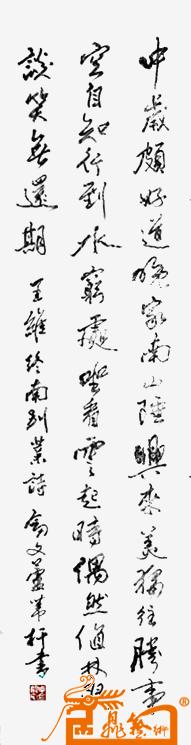 中歲頗好道晚家南山陲興來每獨往勝事
空自知行到水窮處坐看雲起時偶然值林叟
談笑無還期 王維終南別業詩 書